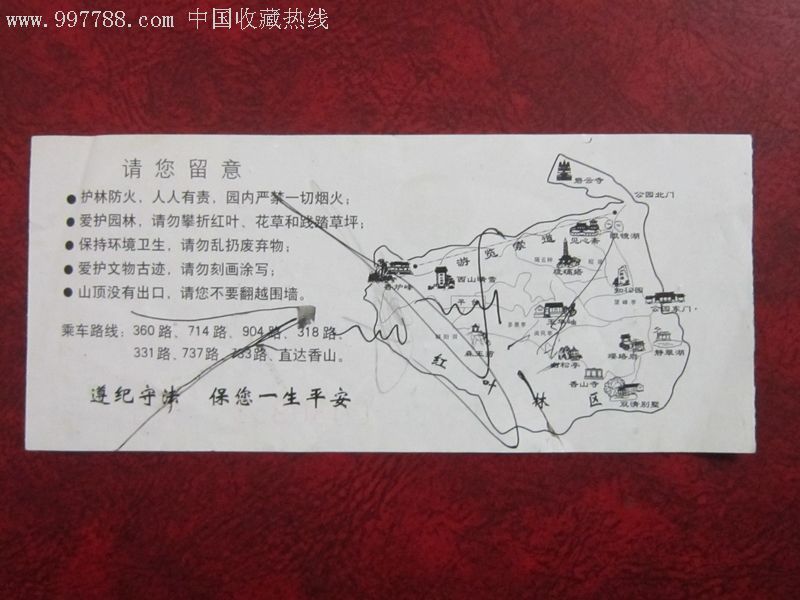 www.997788.com 中国收藏热线
请您留意
●护林防火，人人有责，园内严禁一切烟火；
●爱护园林，请勿攀折红叶、花草和践踏草坪；
●保持环境卫生，请勿乱扔废弃物；
●爱护文物古迹，请勿刻画涂写；
●山顶没有出口，请您不要翻越围墙。
乘车路线：360路、714路、904路、318路、
331路、737路、733路、直达香山。
遵纪守法 保您一生平安
碧云寺
公园北门
游览索道
见心斋
眼镜湖
香炉峰
西山晴雪
琉璃塔
昭庙
知松园
公园东门
森玉笏
璎珞岩
静翠湖
香山寺
双清别墅
红叶林区